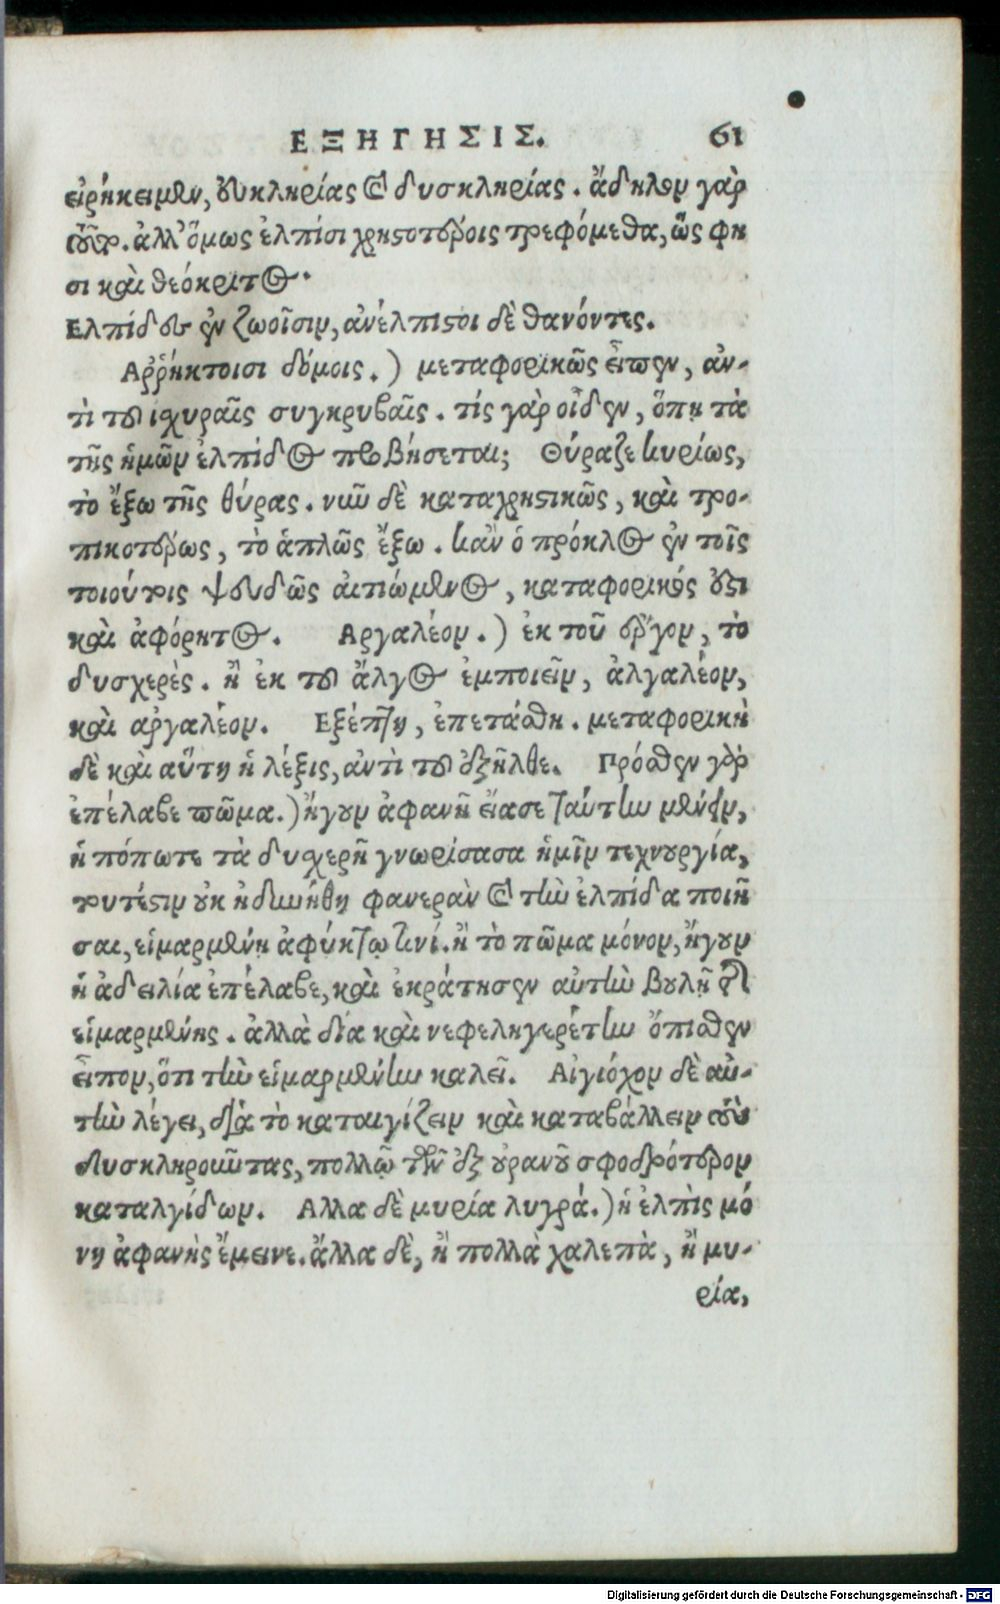 ΕΞΗΓΗΣΙΣ. 61
εἰρήκειμεν, εὐκληρίας καὶ δυσκληρίας. ἄδηλον γὰρ
ἀλλ' ὅμως ἐλπίσι χρηστοτέροις τρεφόμεθα, ὥς φη
σι καὶ θεόκριτος.
Ελπίδες ἐν ζωοῖσιν, ἀνέλπιστοι δὲ θανόντες.
Αῤῥήκτοισι δόμοις.) μεταφορικῶς εἶπεν, ἀν-
τὶ τοῦ ἰσχυραῖς συγκρυβαῖς. τίς γὰρ οἶδεν, ὅπη τὰ
τῆς ἡμῶν ἐλπίδος προβήσεται; Θύραζε κυρίως,
τὸ ἔξω τῆς θύρας. νῦν δὲ καταχρηστικῶς, καὶ τρο-
πικοτέρως, τὸ ἁπλῶς ἔξω. κἂν ὁ πρόκλος ἐν τοῖς
τοιούτοις ψευδῶς αἰτιώμενος, καταφορικός ἐστι
καὶ ἀφόρητος. Αργαλέον.) ἐκ τοῦ ἔργον, τὸ
δυσχερὲς. ἢ ἐκ τοῦ ἄλγος ἐμποιεῖν, ἀλγαλέον,
καὶ ἀργαλέον. Εξέπτη, ἐπετάσθη. μεταφορικὴ
δὲ καὶ αὕτη ἡ λέξις, ἀντὶ τοῦ ἐξῆλθε. Πρόσθεν γὰρ
ἐπέλαβε πῶμα.) ἤγουν ἀφανῆ εἴασε ταύτην μένειν,
ἡ πόπωτε τὰ δυσχερῆ γνωρίσασα ἡμῖν τεχνουργία,
τουτέστιν οὐκ ἠδυνήθη φανερὰν καὶ τὴν ἐλπίδα ποιῆ
σαι, εἱμαρμένῃ ἀφύκτῳ τινί. ἢ τὸ πῶμα μόνον, ἤγουν
ἡ ἀδειλία ἐπέλαβε, καὶ ἐκράτησεν αὐτὴν βουλῇ τῆς
εἱμαρμένης. ἀλλὰ δία καὶ νεφεληγερέτην ὄπισθεν
εἶπον, ὅτι τὴν εἱμαρμένην καλεῖ. Αἰγιόχον δὲ αὐ-
τὴν λέγει, διὰ τὸ καταιγίζειν καὶ καταβάλλειν τοὺς
δυσκληροῦντας, πολλῷ τῶν ἐξ οὐρανοῦ σφοδρότερον
καταλγίδων. Αλλα δὲ μυρία λυγρά.) ἡ ἐλπὶς μό
νη ἀφανὴς ἔμεινε. ἄλλα δὲ, ἢ πολλὰ χαλεπὰ, ἢ μυ-
ρία,
Digitalisierung gefördert durch die Deutsche Forschungsgemeinschaft - DFG